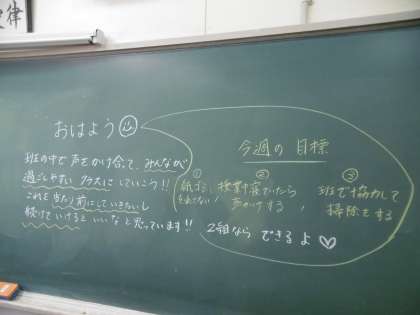 律
おはよう
班の中で声をかけ合って、みんなが
過ごしやすいクラスにしていこう!!
これを当たり前にしていきたいし
続けていけるといいなと思っています!!
今週の目標
①
紙ゴミ
をすてない!
②
授業中寝ていたら
声かけする,
③
班で協力して
掃除をする
2組ならできるよ♡